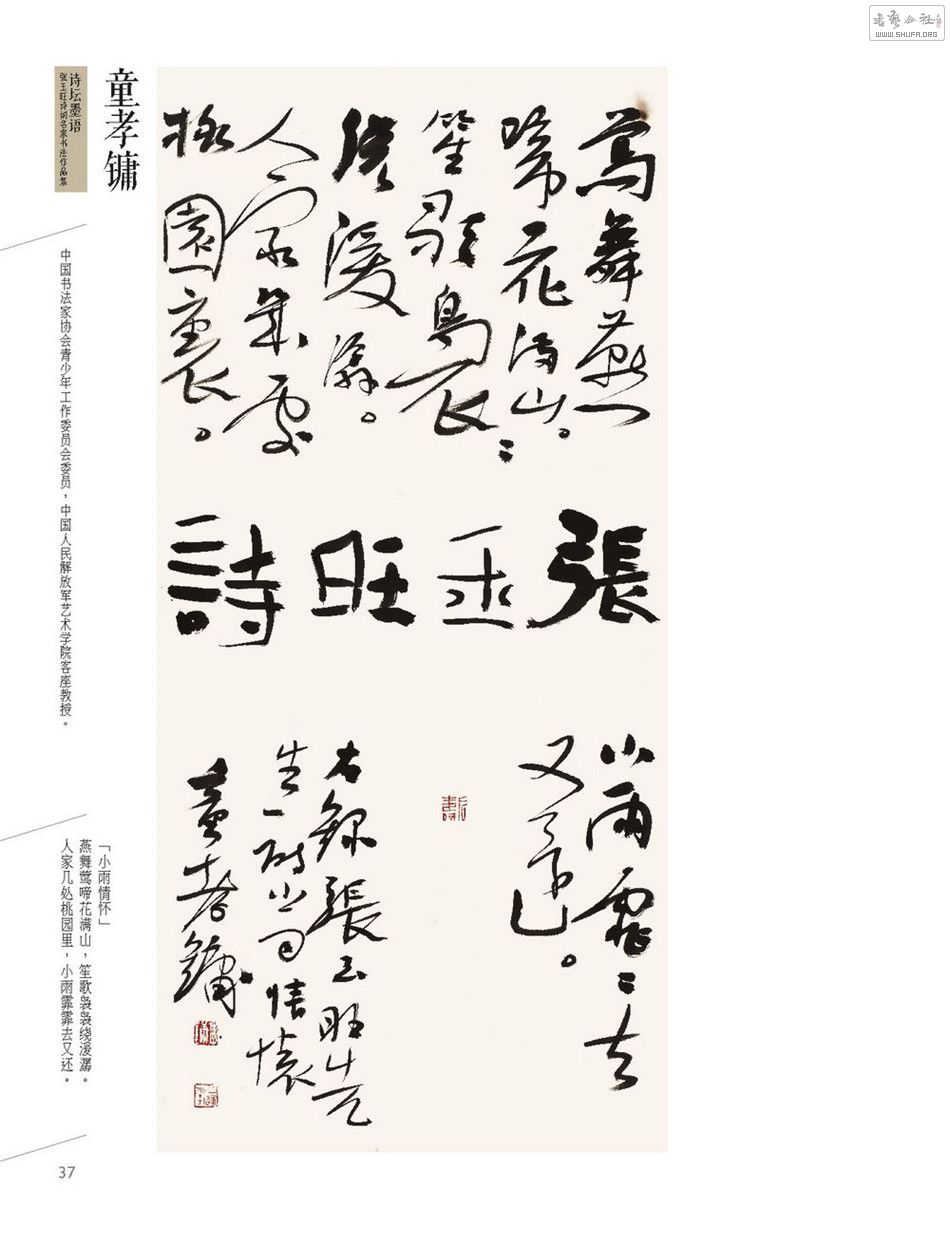 書藝公社
WWW.SHUFA.ORG
童孝镛
诗坛墨语
张玉旺诗词名家书法作品集
中国书法家协会青少年工作委员会委员，中国人民解放军艺术学院客座教授。
鶯舞燕
啼花滿山。
笙歌裊〻
繞湲潺。
人家幾處
桃園裏。
張玉旺詩
小雨霏〻去
又還。
右錄張玉旺先
生一詩小雨情懷
童孝鏞
「小雨情怀」
燕舞莺啼花满山，笙歌袅袅绕湲潺。
人家几处桃园里，小雨霏霏去又还。
37